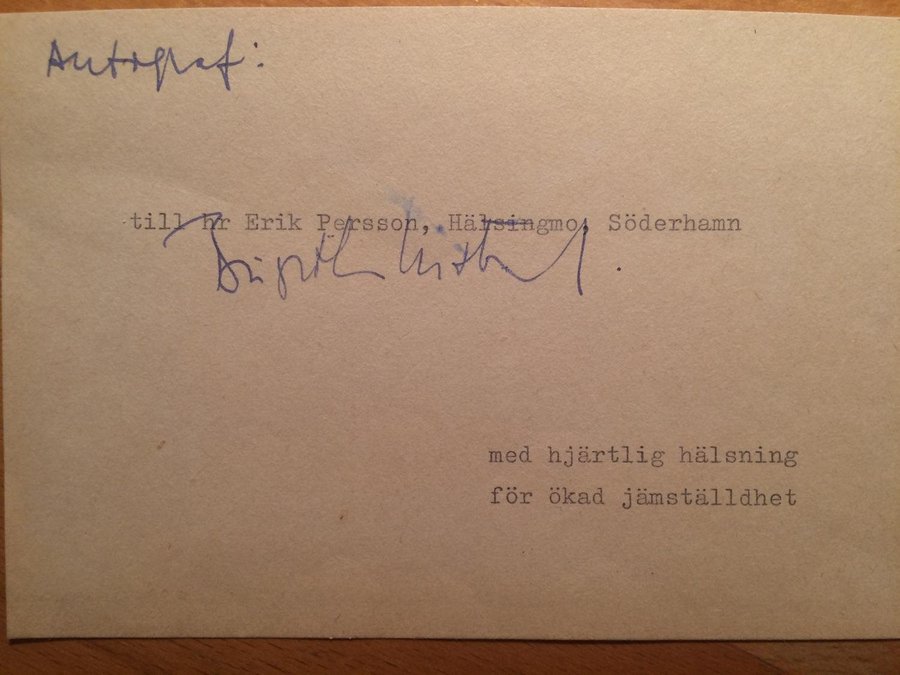 Autograf:
till hr Erik Persson, Hälsingmo, Söderhamn
med hjärtlig hälsning
för ökad jämställdhet